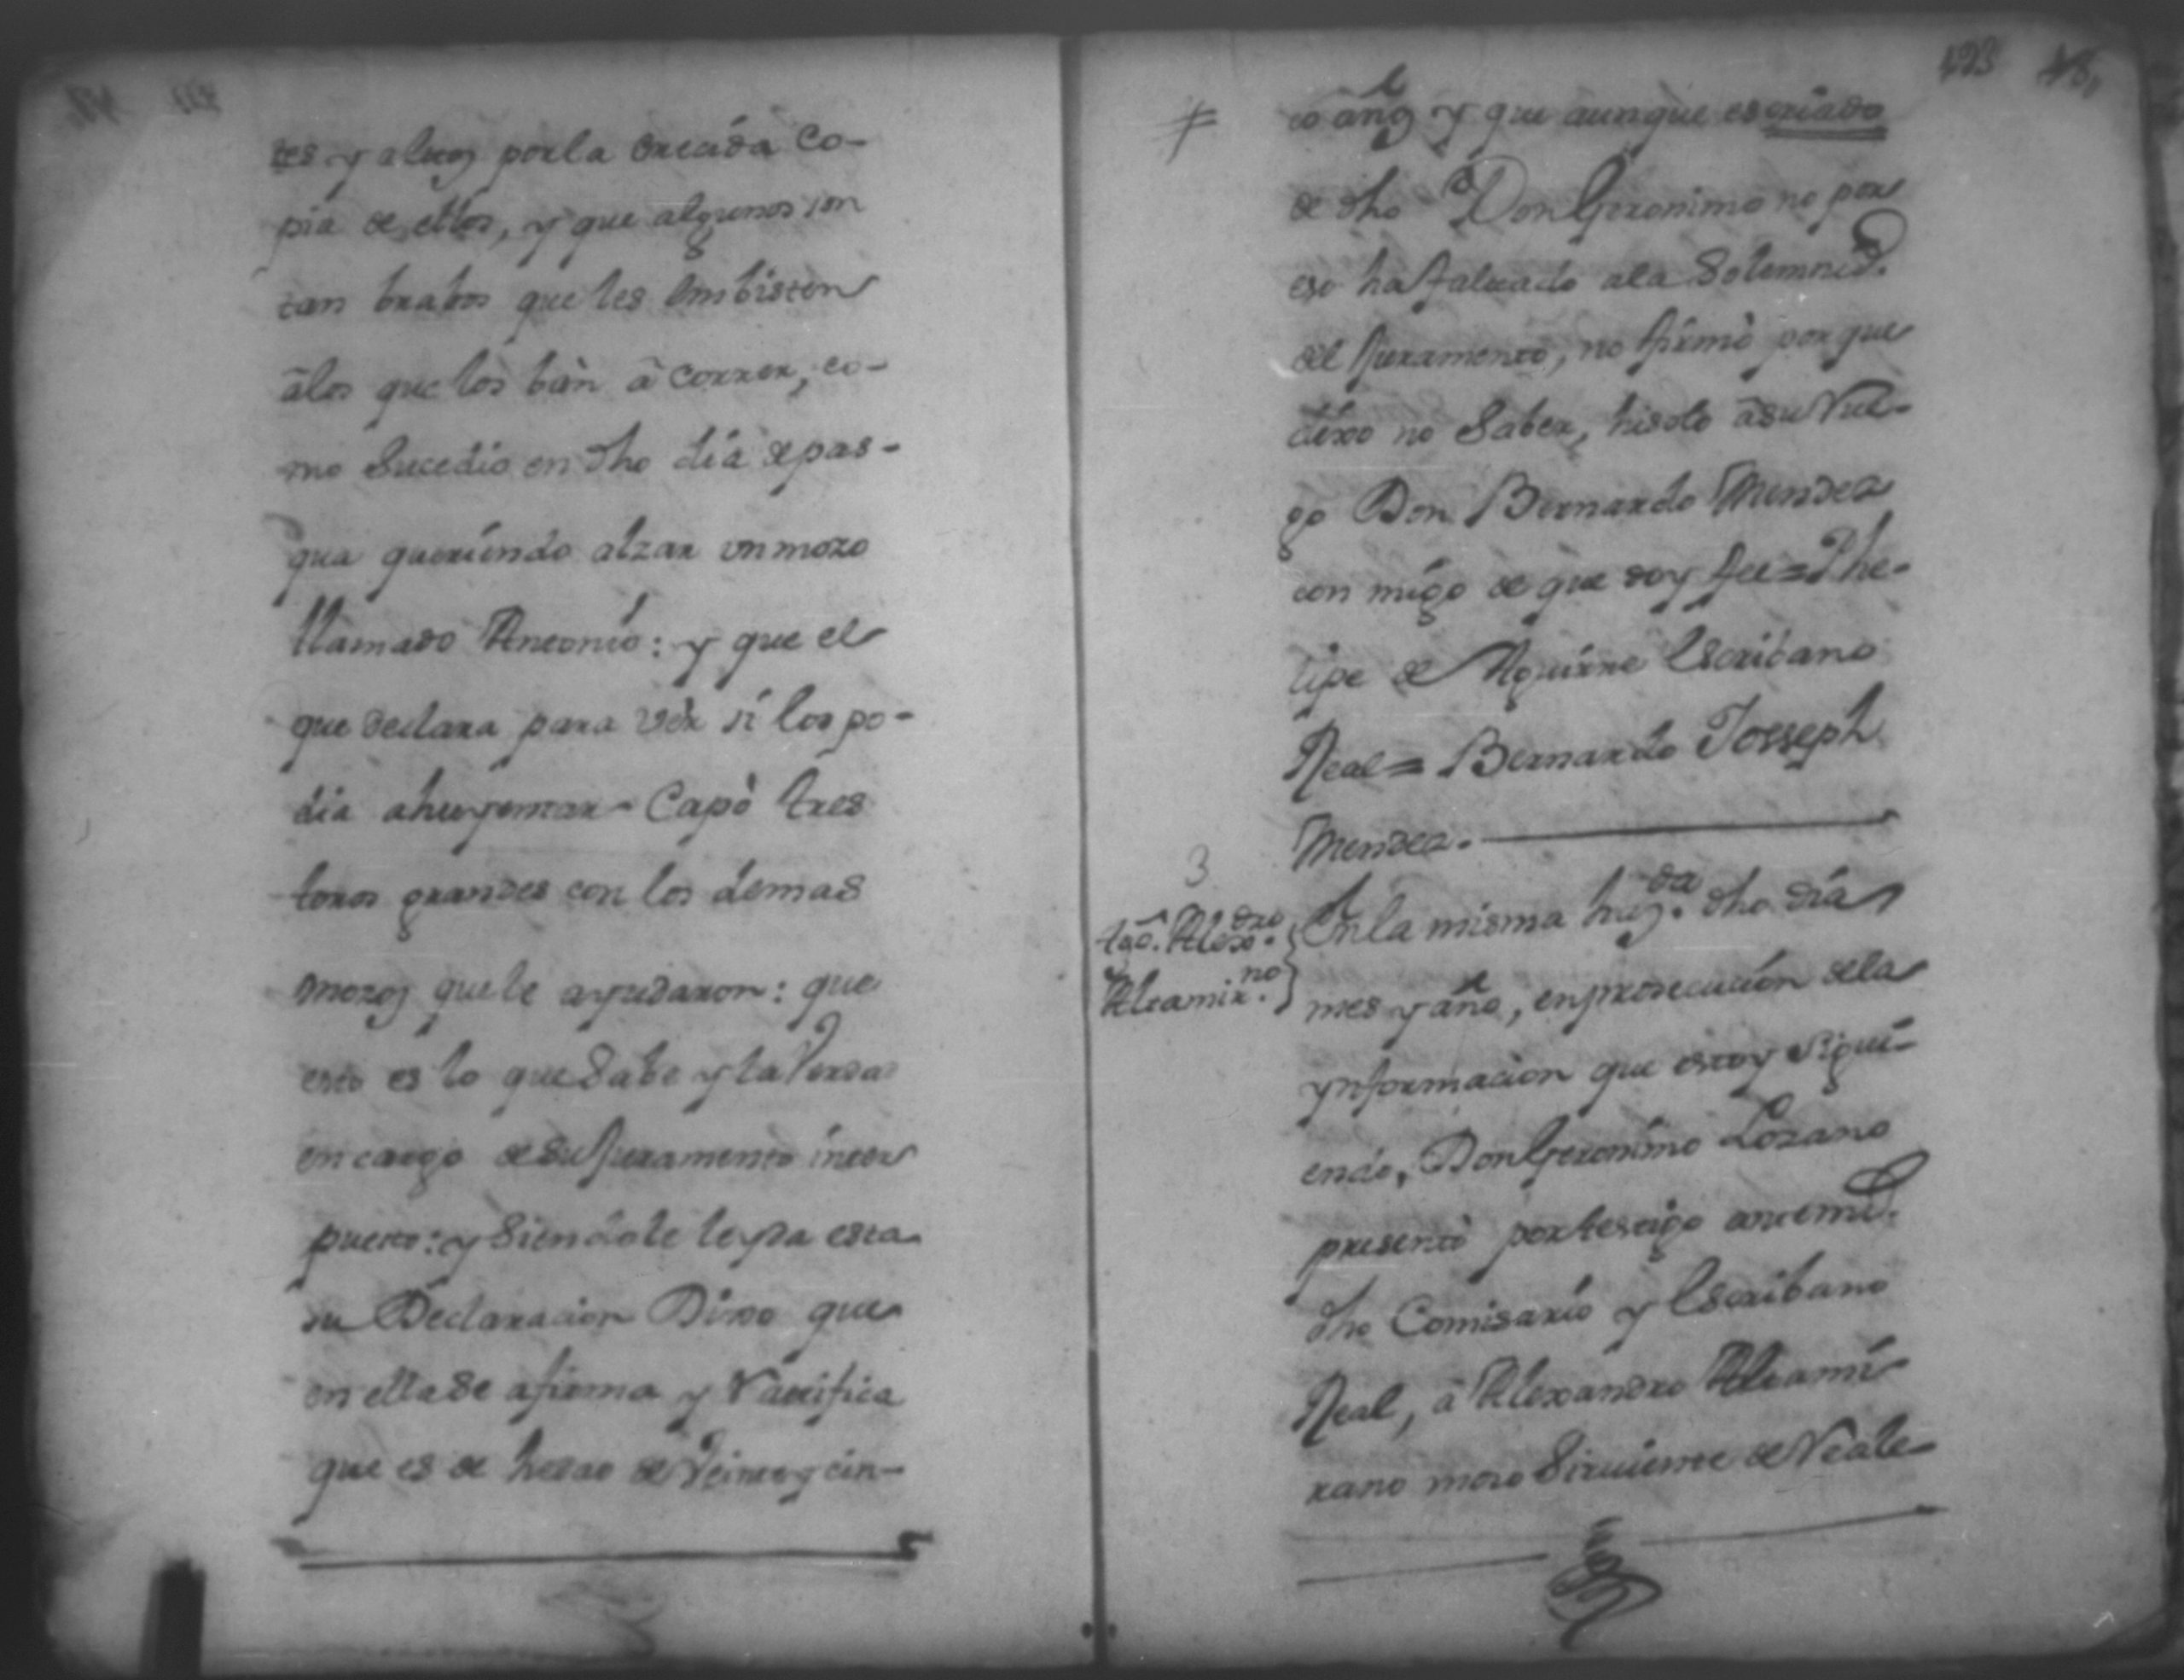 tes y altos por la crecida co-
pia de ellos, y que algunos son
tan brabos que les embisten
â los que los bàn â correr, co-
mo sucediò en dho dia de pas-
qua queriendo alzar un mozo
llamado Antonio: y que el
que declara para vèr si los po-
dia ahuyentar Capò tres
toros grandes con los demas
mozos que le ayudaron: que
esto es lo que sabe y la Verdad
en cargo de su Juramento inter
puesto: y siendole leyda esta
su Declaracion Dixo que
en ella se afirma y Ratifica
que es de hedad de Veinte y cin-
co años y que aunque es criado
de dho Don Geronimo no por
eso ha faltado a la solemnid.
del Juramento, no firmò por que
dixo no saber, hisolo â su Rue-
go Don Bernardo Mendez
con migo de que doy fee = Phe-
lipe de Aguirre Escribano
Real = Bernardo Josseph
Mendez.
3
tgô. Alexo. dro
Altamir. no
En la misma hazda. dho dia
mes y año, en prosecucion de la
ynformacion que estoy sigui-
endo, Don Geronimo Lozano
presentò por testigo ante mi el
dho Comisario y Escribano
Real, â Alexandro Altami-
rano mozo sirviente de Reale-